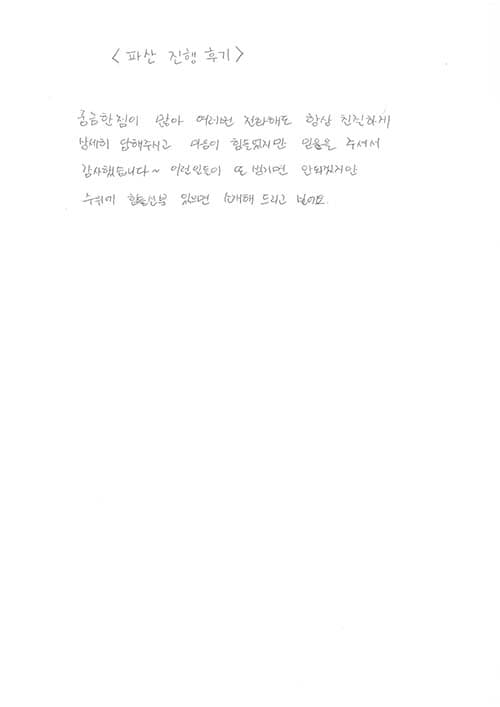 < 파산 진행 후기 >
궁금한점이 많아 여러번 전화해도 항상 친절하게
상세히 답해주시고 마음이 힘들었지만 믿음을 주셔서
감사했습니다~ 이런일들이 또 생기면 안되겠지만
주위에 힘든분 있으면 소개해 드리고 싶어요.